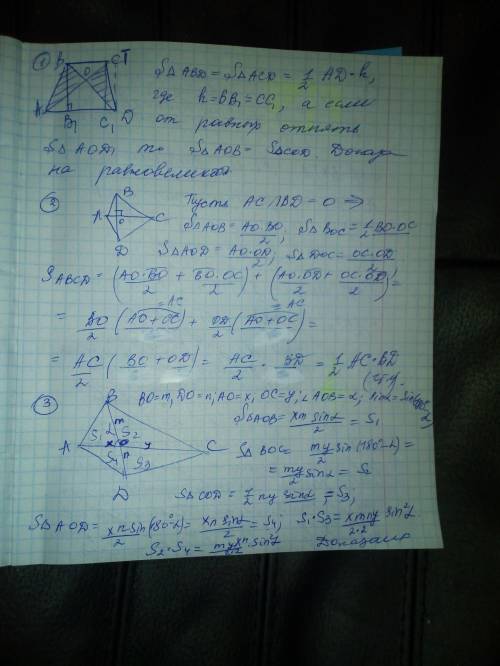 ① B C T
S△ABD = S△ACD = 1/2 AD·h,
A B₁ C₁ D O
где h = BB₁ = CC₁, а если
от равных отнять
S△AOD, то S△AOB = S△COD. Доказа
на равновеликость
② B A O C D
Пусть AC∩BD = O ⇒
S△AOB = AO·BO/2, S△BOC = 1/2 BO·OC
S△AOD = AO·OD/2, S△DOC = OC·OD/2
S ABCD = (AO·BO/2 + BO·OC/2) + (AO·OD/2 + OC·OD/2) =
= BO/2 (AO+OC) + OD/2 (AO+OC) =
=AC =AC
= AC/2 (BO+OD) = AC/2 · BD = 1/2 AC·BD
(чтд).
③ B BO=m, DO=n, AO=x, OC=y, ∠AOB=α,
S△AOB = xm sinα/2 = S₁
A S₁ S₂ m x O y C
S△BOC = my/2 sin(180°-α) =
S₄ n S₃
= my/2 sinα = S₂
D
S△COD = 1/2 ny sinα = S₃,
S△AOD = xn sin(180°-α)/2 = xn sinα/2 = S₄; S₁·S₃ = xmny/2·2 sin²α
S₂·S₄ = myxn sin²α Доказано